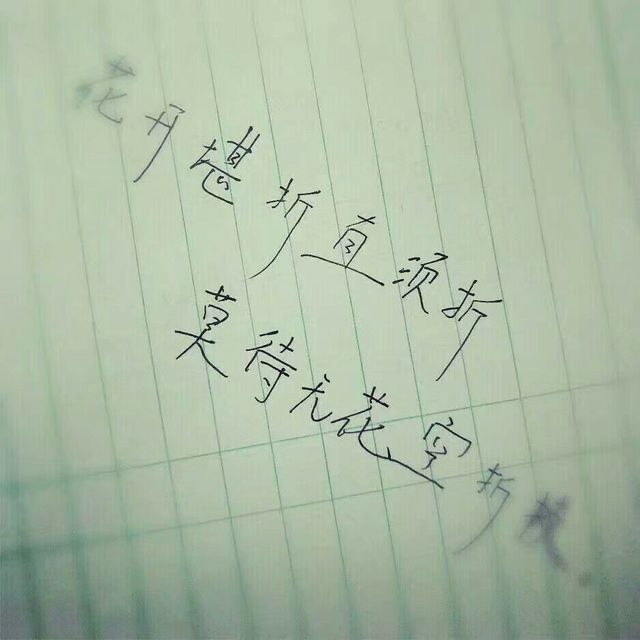 花开堪折直须折
莫待无花空折枝